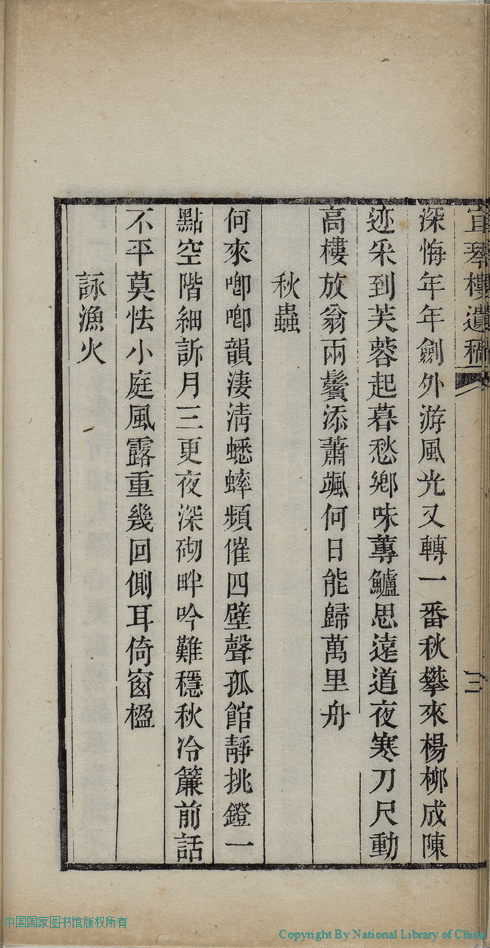 宜琴樓遺稿
三
深悔年年劍外游風光又轉一番秋攀來楊柳成陳
迹采到芙蓉起暮愁鄉味蓴鱸思遠道夜寒刀尺動
高樓放翁兩鬢添蕭颯何日能歸萬里舟
秋蟲
何來唧唧韻淒淸蟋蟀頻催四壁聲孤館靜挑鐙一
點空階細訴月三更夜深砌畔吟難穩秋冷簾前話
不平莫怯小庭風露重幾回側耳倚窗楹
詠漁火
中国国家图书馆版权所有
Copyright By National Library of China